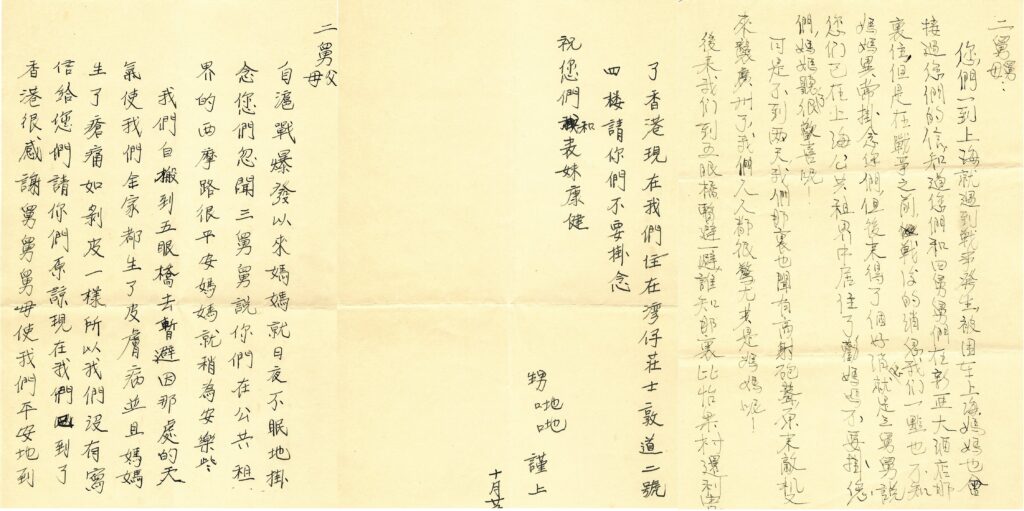 二舅父母
自滬戰爆發以來媽媽就日夜不眠地掛
念您們忽聞三舅舅說你們在公共租
界的西摩路很平安媽媽就稍為安樂些
我們自搬到五眼橋去暫避因那處的天
氣使我們全家都生了皮膚病並且媽媽
生了瘡痛如剝皮一樣所以我們沒有寫
信給您們請你們原諒現在我們已到了
香港很感謝舅舅舅母使我們平安地到
了香港現在我們住在灣仔莊士敦道二號
四樓請你們不要掛念
祝您們和表妹康健
甥 謹上
十月廿
二舅舅母：
您們一到上海就遇到戰事發生被困在上海媽媽也曾
接過您們的信知道您們和四舅舅們在新亞大酒店那
裏住但是在戰爭之前，戰後的消息我們一點也不知
媽媽異常掛念你們但後來得了個好消就是三舅舅說
您們已在上海公共租界中居住了勸媽媽不要掛您
們，媽媽聽的很驚喜呢！
可是不到兩天我們那裏也聞有高射砲聲原來敵機
來襲廣州了我們人人都很驚尤其是媽媽呢！
後來我們到五眼橋暫避一避誰知那裏比怡樂村還利害